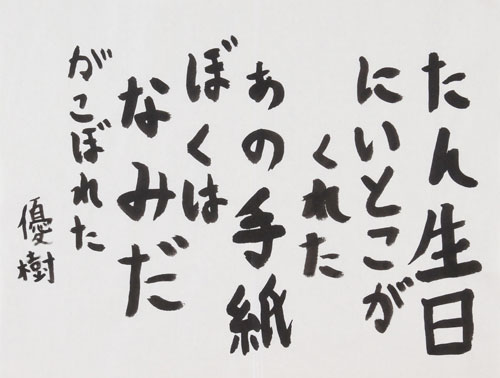 たん生日
にいとこが
くれた
あの手紙
ぼくは
なみだ
がこぼれた
優樹